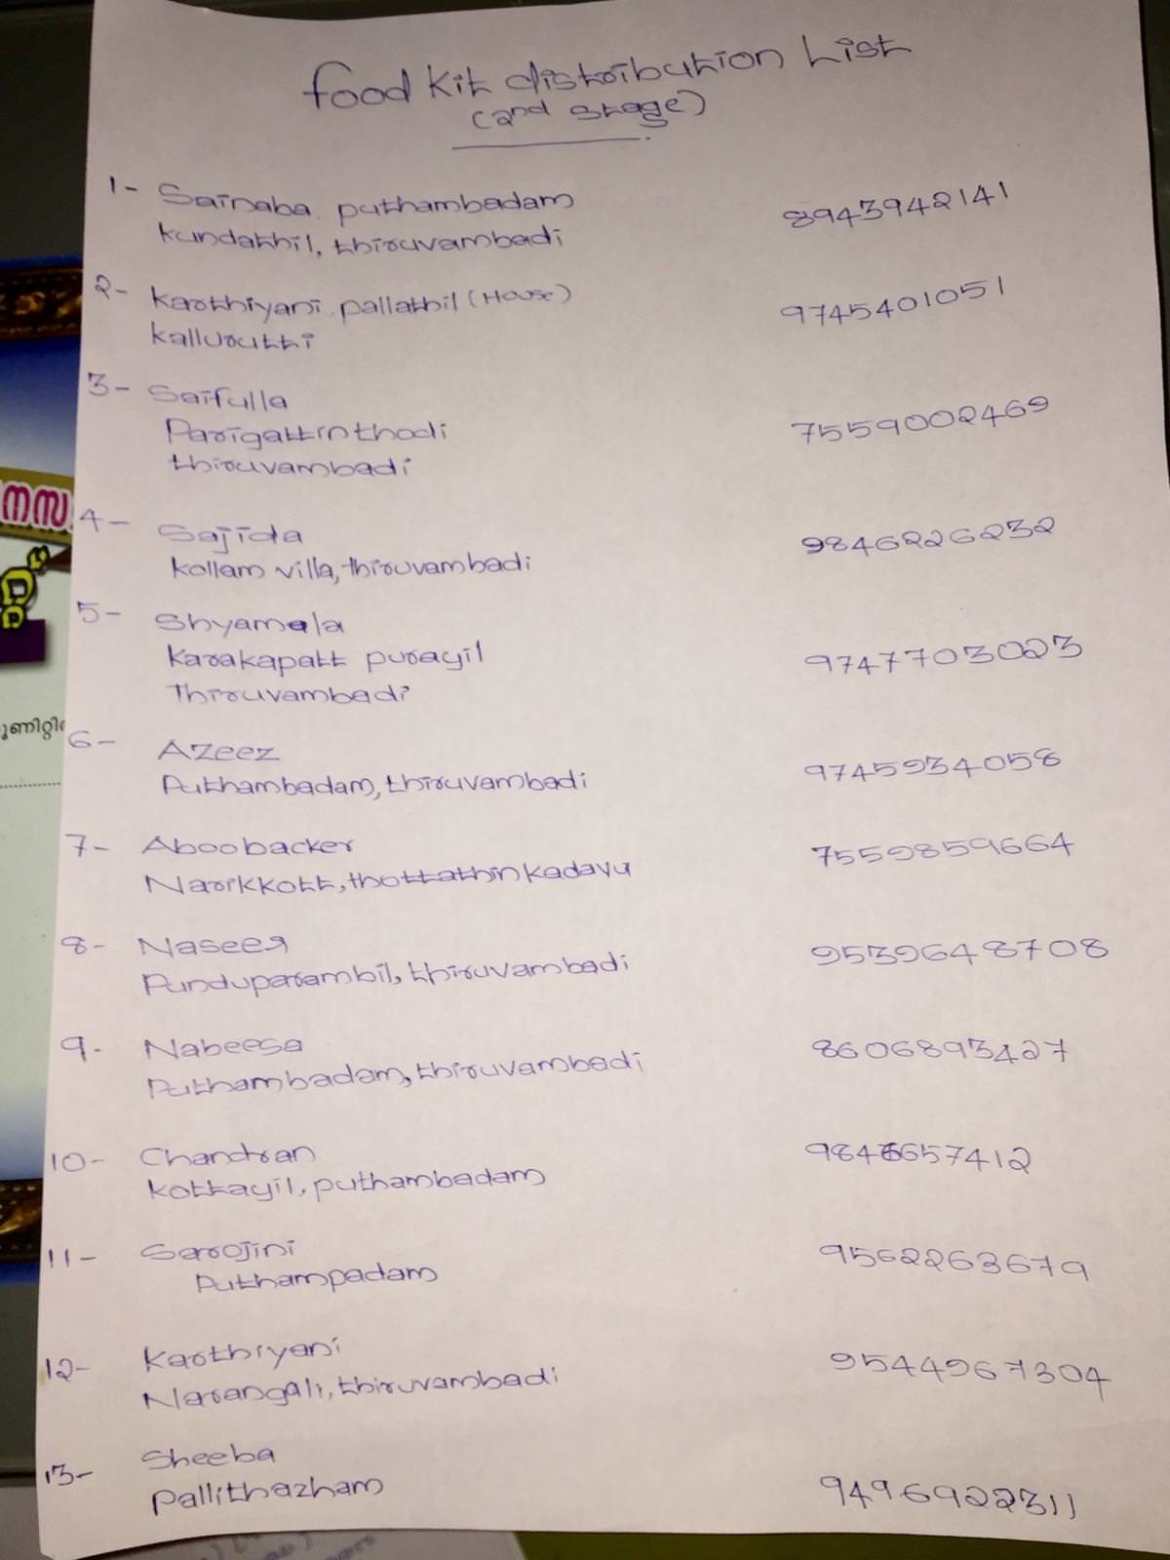 Food Kit distribution List
(2nd stage)
1- Sainaba puthambadam 8943942141
kundathil, thiruvambadi
2- Karthiyani pallathil (House) 9745401051
kallurutti
3- Saifulla
Parigattinthodi 7559002469
thiruvambadi
4- Sajida 9846226232
kollam villa, thiruvambadi
5- Shyamala
Karakapatt purayil 9747703023
Thiruvambadi
6- Azeez 9745934058
Puthambadam, thiruvambadi
7- Aboobacker 7559859664
Narikkott, thottathin kadavu
8- Naseer 9539648708
Punduparambil, thiruvambadi
9- Nabeesa 8606893427
Puthambadam, thiruvambadi
10- Chandran
kottayil, puthambadam
11- Sarojini 9562263679
Puthampadam
12- Karthiyani 9544967304
Narangali, thiruvambadi
13- Sheeba
Pallithazham 9496922311
നസ
ൂണിറ്റി